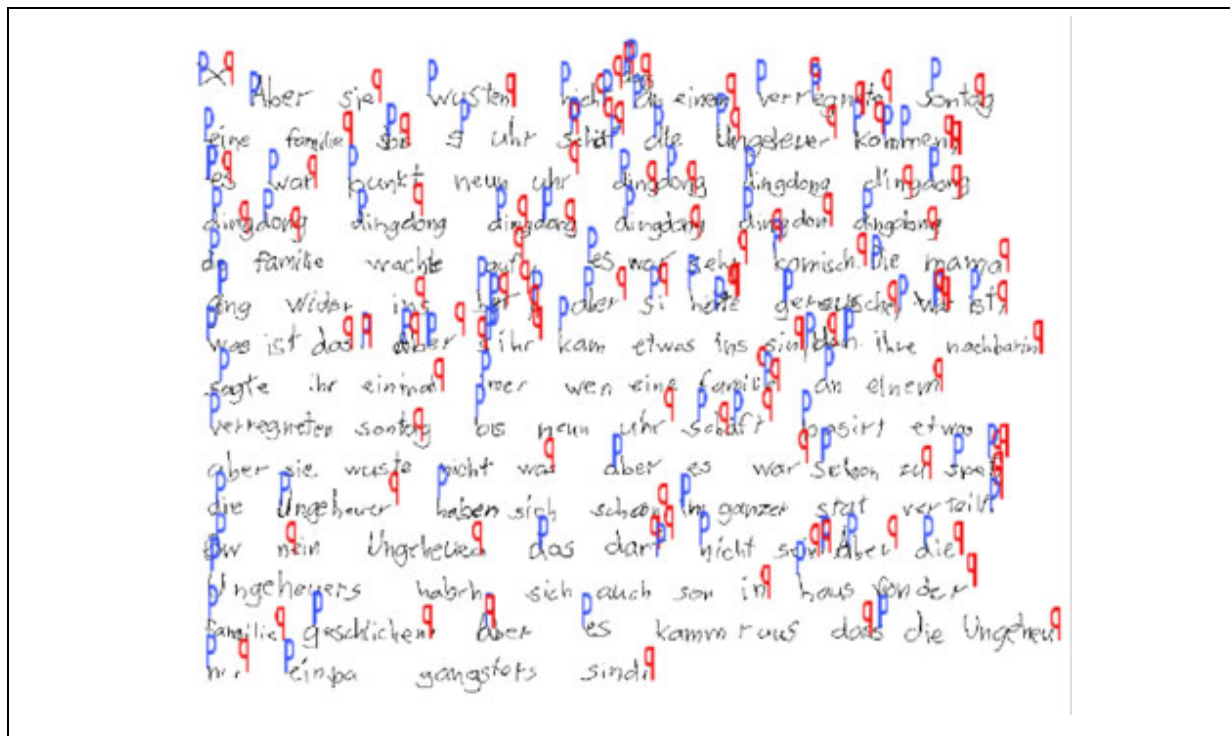 Aber sie wusten nicht an einem verregnete sontag
eine familie son 9 uhr schäft die Ungeheuer kommen,
es war punkt neun uhr dingdong dingdong dingdong
dingdong dingdong dingdong dingdong dingdon dingdong
di familie wachte auf, es war sehr komisch. die mama
ging wider ins bet, aber si hörte gereusche, wer ist,
was ist das aber ihr kam etwas ins sin, den ihre nachbarin
sagte ihr einmal imer wen eine familie an einem
verregneten sontag bis neun uhr schäft basirt etwas
aber sie wuste nicht was aber es war schon zu spet
die Ungeheuer haben sich schon in ganzer stat verteilt
nein Ungeheuer das darf nicht sein Aber die
Ungeheuers habrn sich auch son in haus von der
familie geschlichen Aber es kamm raus dass die Ungeheu
nur einpa gangsters sind